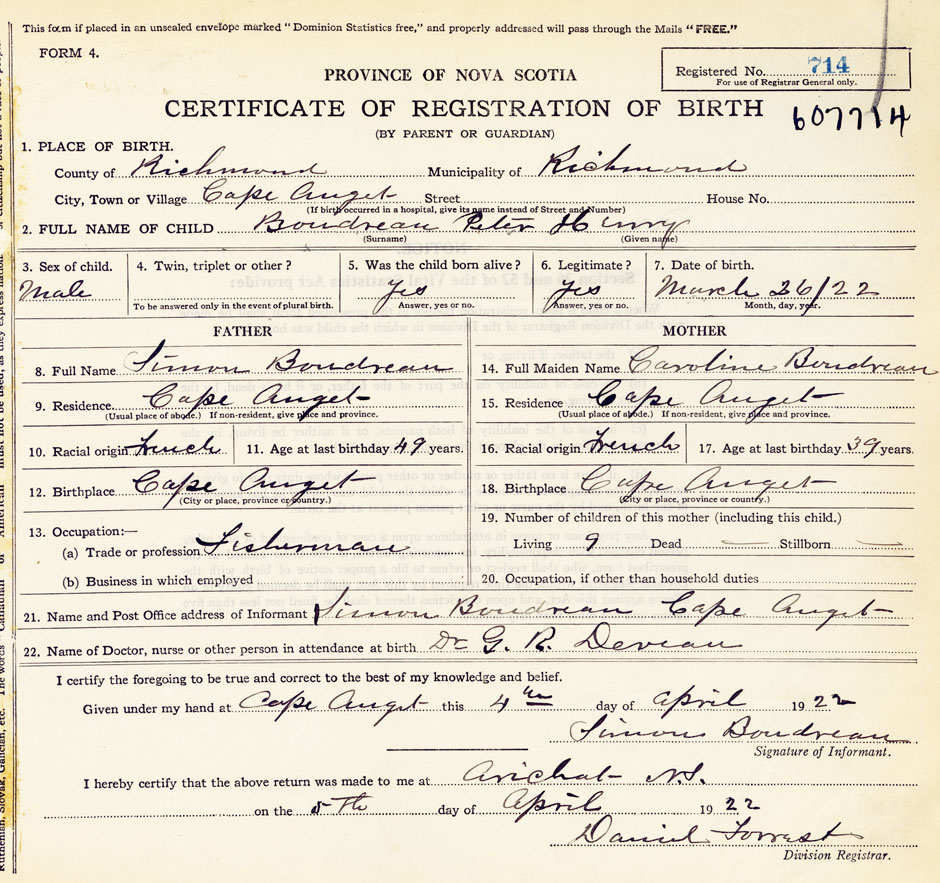 This form if placed in an unsealed envelope marked "Dominion Statistics free," and properly addressed will pass through the Mails "FREE."
FORM 4.
Registered No. 714
For use of Registrar General only.
PROVINCE OF NOVA SCOTIA
CERTIFICATE OF REGISTRATION OF BIRTH
607714
(BY PARENT OR GUARDIAN)
1. PLACE OF BIRTH.
County of Richmond Municipality of Richmond
City, Town or Village Cape Auget Street House No.
(If birth occurred in a hospital, give its name instead of Street and Number)
2. FULL NAME OF CHILD Boudreau Peter Henry
(Surname) (Given name)
3. Sex of child. 4. Twin, triplet or other? 5. Was the child born alive? 6. Legitimate? 7. Date of birth.
Male Yes Yes March 26/22
To be answered only in the event of plural birth. Answer, yes or no. Answer, yes or no. Month, day, year.
FATHER MOTHER
8. Full Name Simon Boudreau 14. Full Maiden Name Caroline Boudreau
9. Residence Cape Auget 15. Residence Cape Auget
(Usual place of abode.) If non-resident, give place and province. (Usual place of abode.) If non-resident, give place and province.
10. Racial origin French 11. Age at last birthday 49 years. 16. Racial origin French 17. Age at last birthday 39 years.
12. Birthplace Cape Auget 18. Birthplace Cape Auget
(City or place, province or country.) (City or place, province or country.)
13. Occupation:— 19. Number of children of this mother (including this child.)
(a) Trade or profession Fisherman Living 9 Dead — Stillborn —
(b) Business in which employed 20. Occupation, if other than household duties
21. Name and Post Office address of Informant Simon Boudreau Cape Auget
22. Name of Doctor, nurse or other person in attendance at birth Dr G. R. Deveau
I certify the foregoing to be true and correct to the best of my knowledge and belief.
Given under my hand at Cape Auget this 4th day of April 1922
Simon Boudreau
Signature of Informant.
I hereby certify that the above return was made to me at Arichat N.S.
on the 5th day of April 1922
Daniel Forrest
Division Registrar.